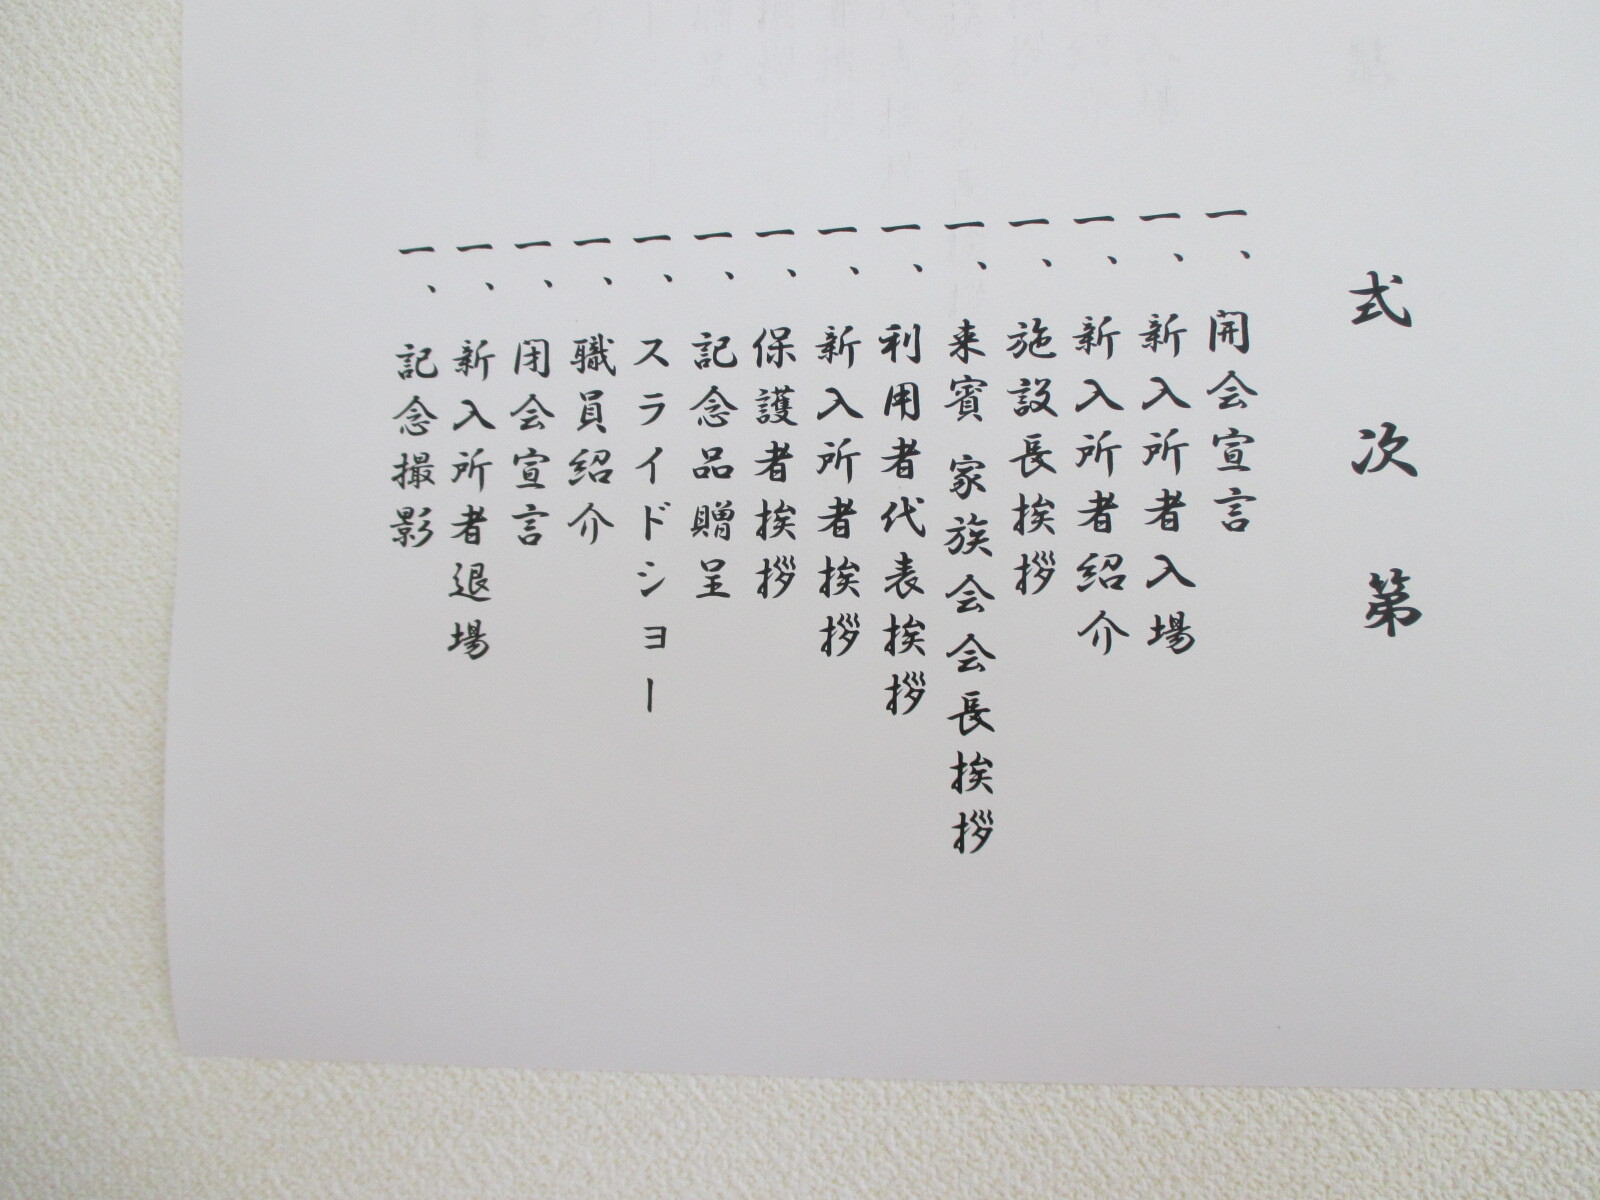 式次第
一、開会宣言
一、新入所者入場
一、新入所者紹介
一、施設長挨拶
一、来賓 家族会会長挨拶
一、利用者代表挨拶
一、新入所者挨拶
一、保護者挨拶
一、記念品贈呈
一、スライドショー
一、職員紹介
一、閉会宣言
一、新入所者退場
一、記念撮影